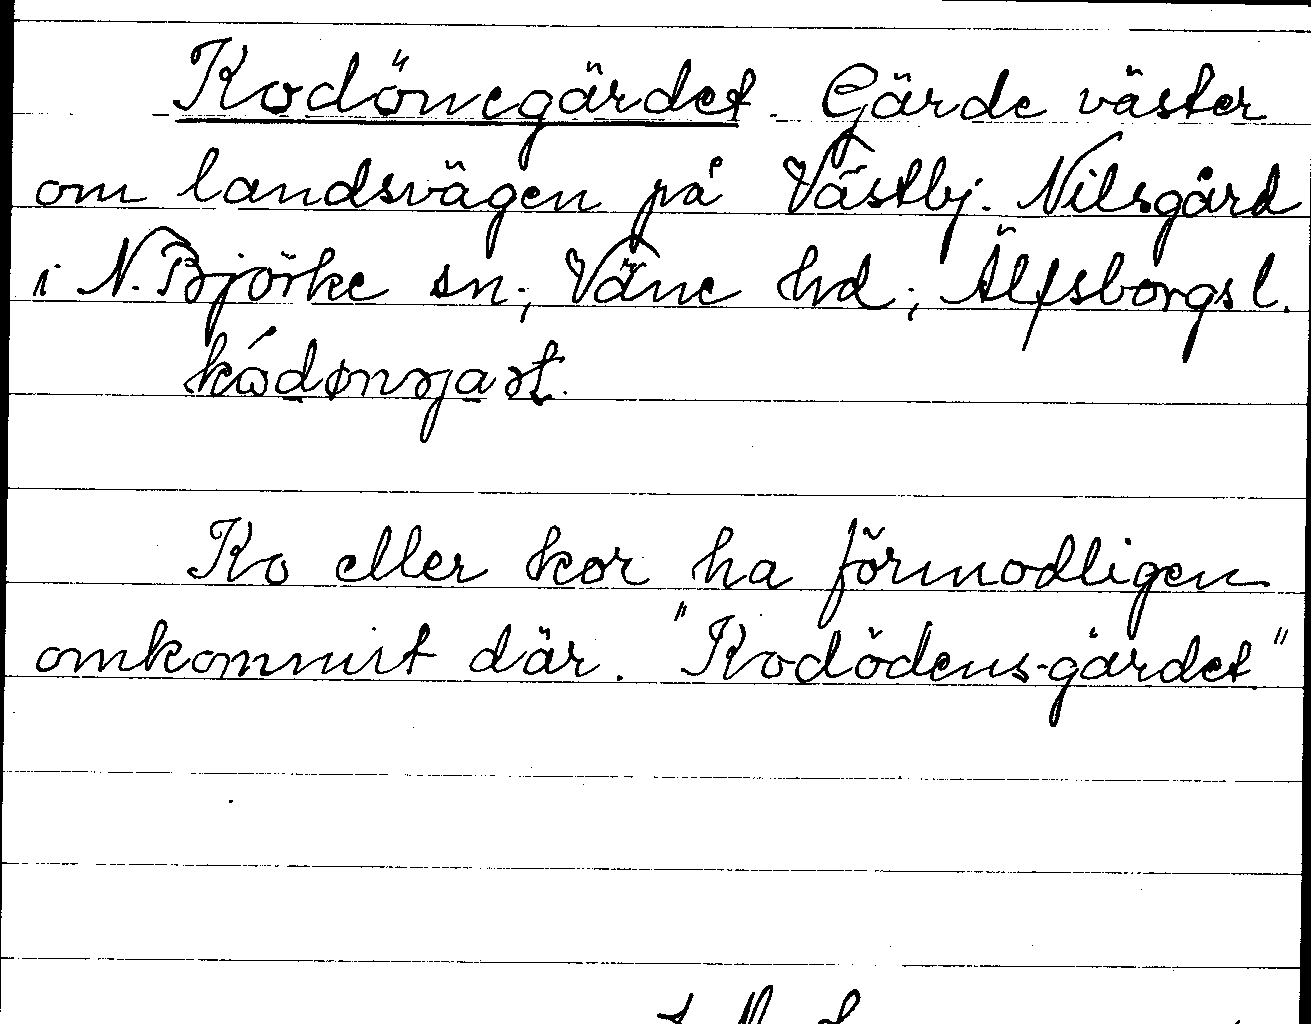 Kodönegärdet. Gärde väster
om landsvägen på Västbj. Nilsgård
i N. Björke sn; Väne hd; Älfsborgs l.
Ko eller kor ha förmodligen
omkommit där. "Kodödens-gärdet"